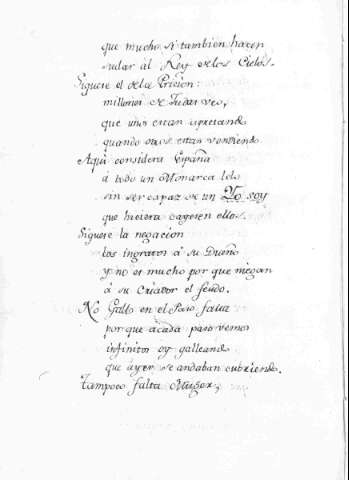 que mucho si tambien hacen
sudar àl Rey de los Cielos.
Siguese el de la Pricion:
millones de Judas veo,
que unos estan apretando
quando otros estan vendiendo
Aqui considera España
à todo un Monarca lelo
sin ser capaz de un Yo soy
que hiciera cayesen ellos.
Siguese la negacion
los ingratos à su Dueño
y no es mucho por que niegan
à su Criador el feudo.
No Gallo en el Paso falta
por que acada paso vemos
infinitos oy galleando
que àyer se andaban cubriendo.
Tampoco falta Muger,